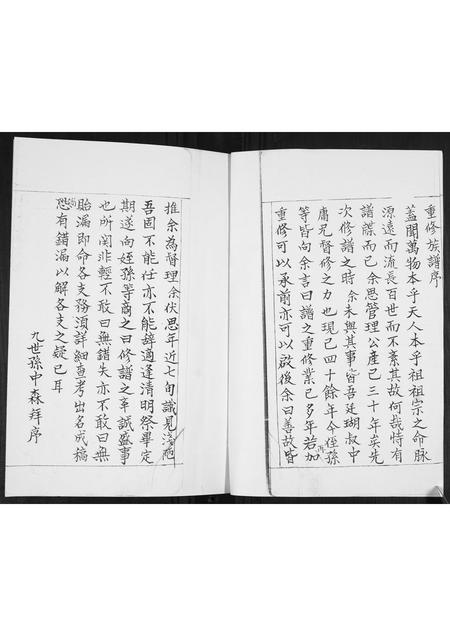 重修族譜序
蓋聞萬物本乎天人本乎祖祖宗之命脉
源遠而流長百世而不紊其故何哉恃有
譜牒而已余思管理公產已三十年矣先
次修譜之時余未與其事皆吾廷瑚叔中
庸兄督修之力也現已四十餘年今侄孫
等皆向余言曰譜之重修業已多年若加
重修可以承前亦可以啟後余曰善故皆
推余為督理余伏思年近七旬識見淺陋
吾固不能任亦不能辞適逢清明祭畢定
期遂向姪孫等商之曰修譜之辛誠盛事
也所関非輕不敢曰無錯失亦不敢曰無
胎漏即命各支務須詳細查考出名成稿
恐有錯漏以解各支之疑已耳
九世孫中森拜序